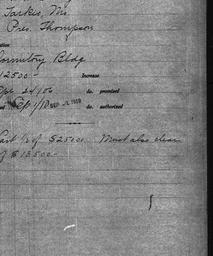 Parkes, Mo
Pres. Thompson
Dormitory Bldg
12500- Increase
Apr 24/06 do. promised
Sep 1/10 SEP 1910 do. authorized
Last 1/2 of $25000. Must also clear
of $13500-